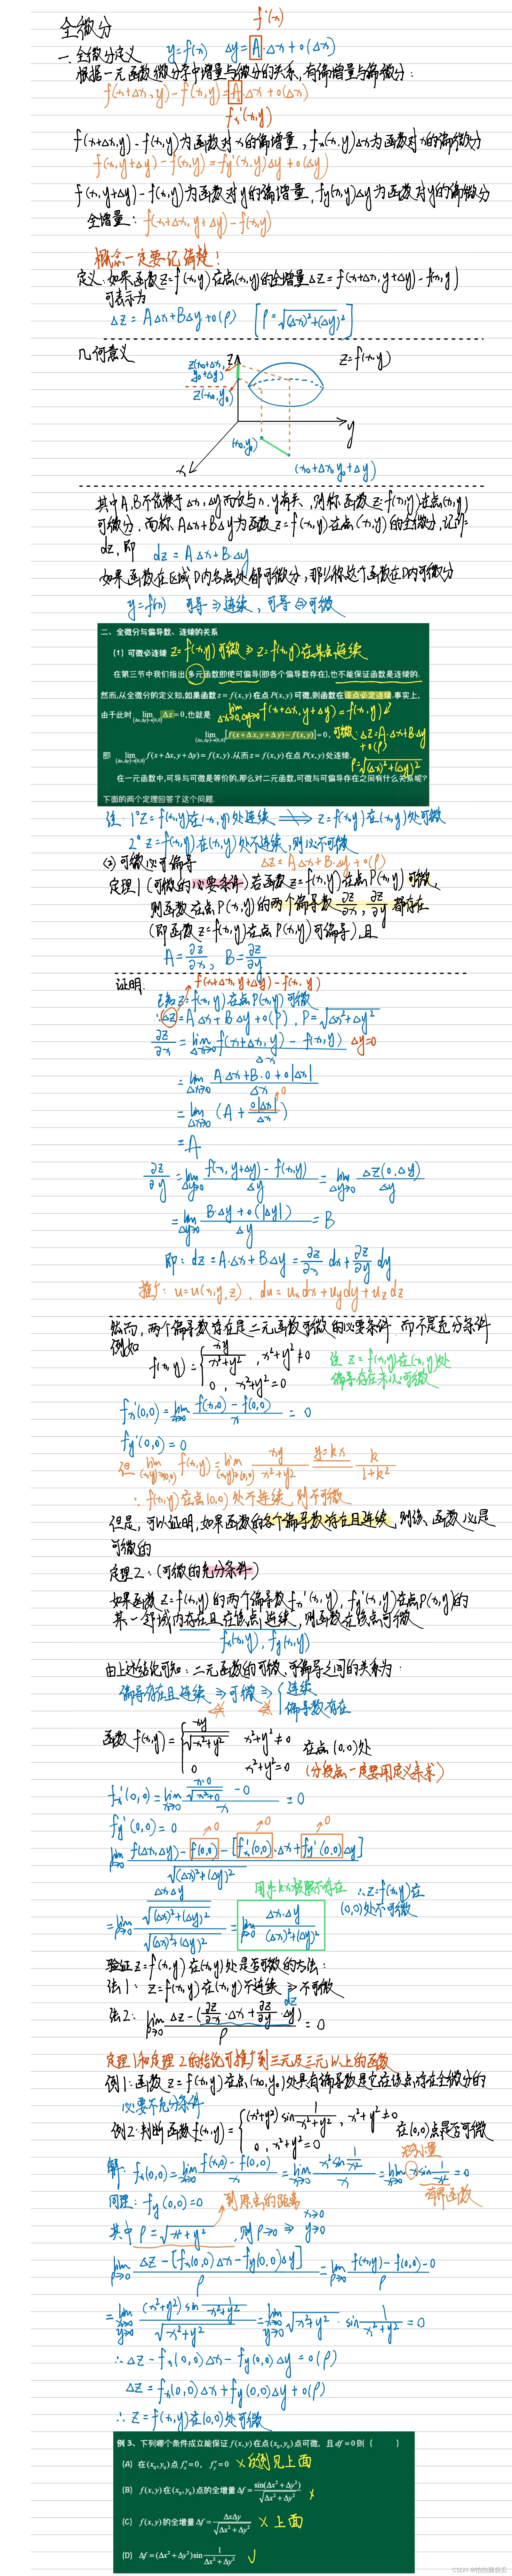 全微分
f'(x)
一. 全微分定义 y=f(x) Δy=A·Δx+o(Δx)
根据一元函数微分学中增量与微分的关系,有偏增量与偏微分:
f(x+Δx,y)-f(x,y)=A·Δx+o(Δx)
fx'(x,y)
f(x+Δx,y)-f(x,y)为函数对x的偏增量,fx(x,y)Δx为函数对x的偏微分
f(x,y+Δy)-f(x,y)=fy'(x,y)Δy+o(Δy)
f(x,y+Δy)-f(x,y)为函数对y的偏增量,fy(x,y)Δy为函数对y的偏微分
全增量: f(x+Δx,y+Δy)-f(x,y)
概念一定要记清楚!
定义:如果函数z=f(x,y)在点(x,y)的全增量Δz=f(x+Δx,y+Δy)-f(x,y)
可表示为
Δz=AΔx+BΔy+o(ρ) [ρ=√((Δx)²+(Δy)²)]
几何意义
z(x0+Δx, y0+Δy)
z
z=f(x,y)
z(x0,y0)
y
(x0,y0)
x
(x0+Δx,y0+Δy)
其中A,B不依赖于Δx,Δy而仅与x,y有关,则称函数z=f(x,y)在点(x,y)
可微分,而称AΔx+BΔy为函数z=f(x,y)在点(x,y)的全微分,记作
dz,即 dz=A·Δx+B·Δy
如果函数在区域D内各点处都可微分,那么称这个函数在D内可微分
y=f(x) 可导⇒连续,可导⇔可微
二、全微分与偏导数、连续的关系
(1)可微必连续 z=f(x,y)可微⇒z=f(x,y)在某点连续
在第三节中我们指出多元函数即使可偏导(即各个偏导数存在),也不能保证函数是连续的.
然而,从全微分的定义知,如果函数z=f(x,y)在点P(x,y)可微,则函数在该点必定连续.事实上,
由于此时 lim(Δx,Δy)→(0,0) Δz=0,也就是 lim Δx→0,Δy→0 f(x+Δx,y+Δy)=f(x,y)
lim(Δx,Δy)→(0,0)[f(x+Δx,y+Δy)-f(x,y)]=0, 可微:Δz=A·Δx+B·Δy+o(ρ)
即 lim(Δx,Δy)→(0,0) f(x+Δx,y+Δy)=f(x,y).从而z=f(x,y)在点P(x,y)处连续. ρ=√((Δx)²+(Δy)²)
在一元函数中,可导与可微是等价的,那么对二元函数,可微与可偏导存在之间有什么关系呢?
下面的两个定理回答了这个问题.
注: 1° z=f(x,y)在(x,y)处连续 ⇒ z=f(x,y)在(x,y)处可微
2° z=f(x,y)在(x,y)处不连续,则必不可微
(2)可微必可偏导 Δz=A·Δx+B·Δy+o(ρ)
定理1(可微的必要条件)若函数z=f(x,y)在点P(x,y)可微,
则函数在点P(x,y)的两个偏导数∂z/∂x,∂z/∂y都存在
(即函数z=f(x,y)在点P(x,y)可偏导),且
A=∂z/∂x, B=∂z/∂y
f(x+Δx,y+Δy)-f(x,y)
证明:
已知z=f(x,y)在点P(x,y)可微
∴Δz=A·Δx+B·Δy+o(ρ), ρ=√(Δx²+Δy²)
∂z/∂x=lim Δx→0 (f(x+Δx,y)-f(x,y))/Δx Δy=0
=lim Δx→0 (A·Δx+B·0+o|Δx|)/Δx
=lim Δx→0 (A+o|Δx|/Δx) 0
=A
∂z/∂y=lim Δy→0 (f(x,y+Δy)-f(x,y))/Δy=lim Δy→0 Δz(0,Δy)/Δy
=lim Δy→0 (B·Δy+o(|Δy|))/Δy=B
即: dz=A·Δx+B·Δy=∂z/∂x dx+∂z/∂y dy
推广: u=u(x,y,z), du=ux dx+uy dy+uz dz
然而,两个偏导数存在是二元函数可微的必要条件 而不是充分条件
例如
f(x,y)={ xy/(x²+y²), x²+y²≠0
0, x²+y²=0
注 z=f(x,y)在(x,y)处
偏导存在未必可微
fx'(0,0)=lim x→0 (f(x,0)-f(0,0))/x=0
fy'(0,0)=0
但 lim(x,y)→(0,0) f(x,y)=lim(x,y)→(0,0) xy/(x²+y²) y=kx k/(1+k²)
∴f(x,y)在点(0,0)处不连续,则不可微
但是,可以证明,如果函数的各个偏导数存在且连续,则该函数必是
可微的
定理2:(可微的充分条件)
如果函数z=f(x,y)的两个偏导数fx'(x,y),fy'(x,y)在点P(x,y)的
某一邻域内存在且在该点连续,则函数在该点可微
fx(x,y),fy(x,y)
由上述结论可知:二元函数的可微、可偏导之间的关系为:
偏导存在且连续⇒可微⇒{连续
偏导数存在
函数f(x,y)={ xy/√(x²+y²) x²+y²≠0
0 x²+y²=0
在点(0,0)处
(分段点一定要用定义来求)
fx'(0,0)=lim x→0 (x·0/√(x²+0)-0)/x=0
fy'(0,0)=0
→0 →0 →0
lim ρ→0 (f(Δx,Δy)-f(0,0)-[fx'(0,0)·Δx+fy'(0,0)Δy])/√((Δx)²+(Δy)²)
=lim ρ→0 (ΔxΔy/√((Δx)²+(Δy)²))/√((Δx)²+(Δy)²)=lim ρ→0 Δx·Δy/((Δx)²+(Δy)²)
用y=kx极限不存在
∴z=f(x,y)在
(0,0)处不可微
验证z=f(x,y)在(x,y)处是否可微的方法:
法1: z=f(x,y)在(x,y)不连续⇒不可微
dz
法2: lim ρ→0 (Δz-(∂z/∂x·Δx+∂z/∂y·Δy))/ρ=0
定理1和定理2的结论可推广到三元及三元以上的函数
例1:函数z=f(x,y)在点(x0,y0)处具有偏导数是它在该点存在全微分的
必要不充分条件
例2:判断函数f(x,y)={(x²+y²)sin 1/(x²+y²), x²+y²≠0
0, x²+y²=0
在(0,0)点是否可微
无穷小量
解: fx(0,0)=lim x→0 (f(x,0)-f(0,0))/x=lim x→0 (x²sin 1/x²)/x=lim x→0 x sin 1/x²=0
有界函数
同理: fy(0,0)=0 到原点的距离
其中ρ=√(x²+y²),则ρ→0⇒x→0 y→0
lim ρ→0 (Δz-[fx(0,0)Δx-fy(0,0)Δy])/ρ=lim ρ→0 (f(x,y)-f(0,0)-0)/ρ
=lim x→0 y→0 ((x²+y²)sin 1/(x²+y²))/√(x²+y²)=lim x→0 y→0 √(x²+y²)·sin 1/(x²+y²)=0
∴Δz-fx(0,0)Δx-fy(0,0)Δy=o(ρ)
Δz=fx(0,0)Δx+fy(0,0)Δy+o(ρ)
∴z=f(x,y)在(0,0)处可微
例 3、下列哪个条件成立能保证f(x,y)在点(x0,y0)点可微,且df=0则( )
(A) 在(x0,y0)点f'x=0, f'y=0 ×反例见上面
(B) f(x,y)在(x0,y0)点的全增量Δf=sin(Δx²+Δy²)/√(Δx²+Δy²) ×
(C) f(x,y)的全增量Δf=ΔxΔy/√(Δx²+Δy²) ×上面
(D) Δf=(Δx²+Δy²)sin 1/(Δx²+Δy²) √
CSDN @拍拍脑袋瓜